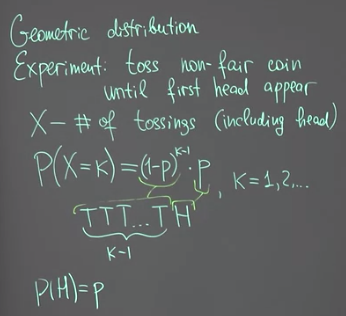 Geometric distribution
Experiment: toss non-fair coin
until first head appear
X - # of tossings (including head)
P(X=K) = (1-p)^{K-1} · p , K=1,2,...
TTT...TH
K-1
P(H)=p